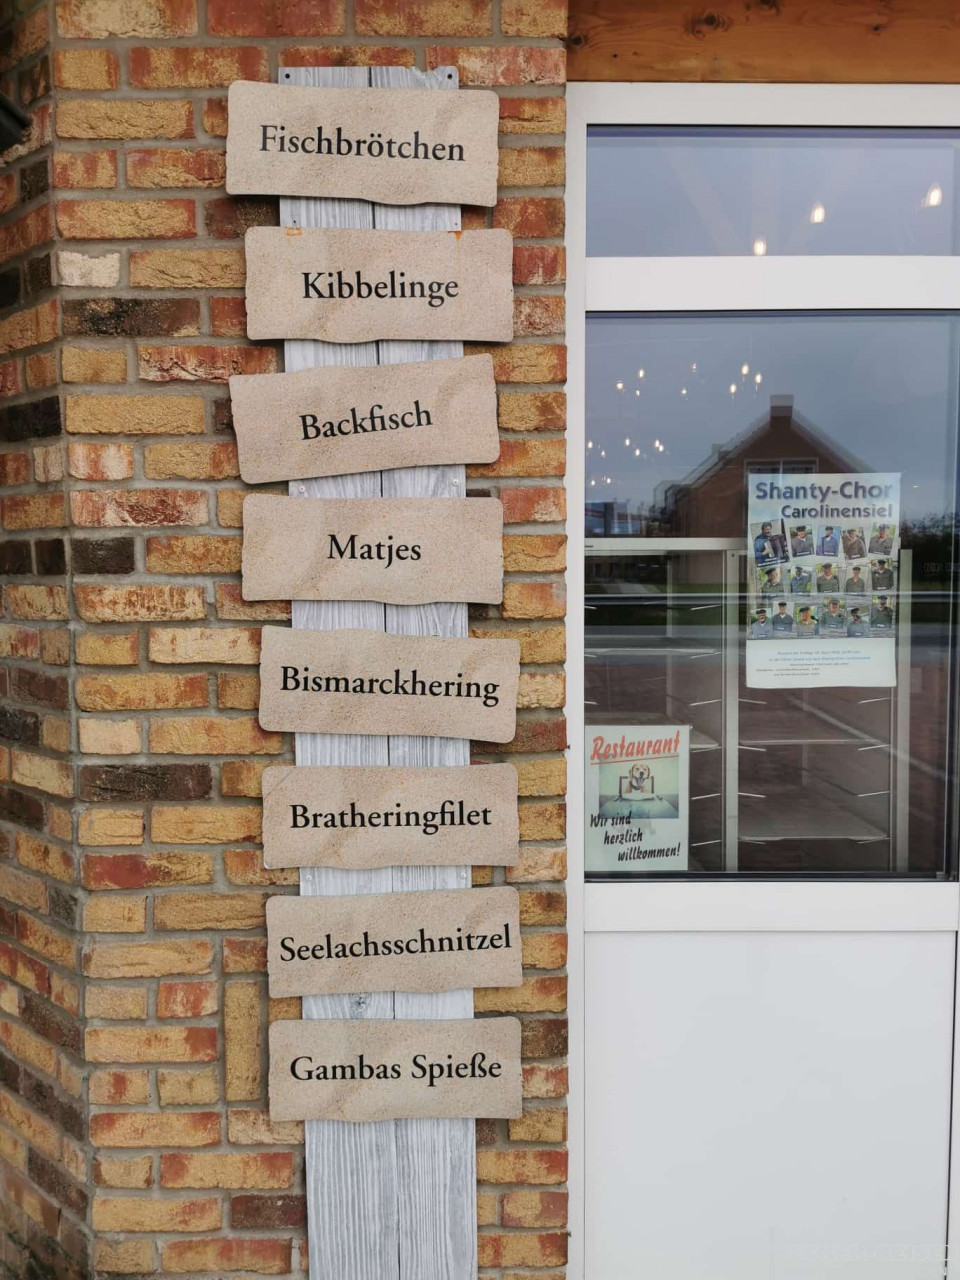 Fischbrötchen
Kibbelinge
Backfisch
Matjes
Bismarckhering
Bratheringfilet
Seelachsschnitzel
Gambas Spieße
Shanty-Chor
Carolinensiel
Restaurant
Wir sind
herzlich
willkommen!